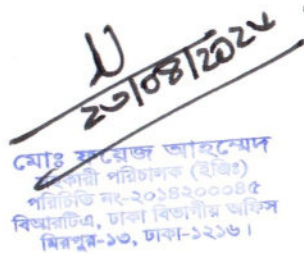 ২৩/০৪/২০২৫
মোঃ ফয়েজ আহম্মেদ
সহকারী পরিচালক (ইঞ্জিঃ)
পরিচিতি নং-২০১৪২০০০৪৫
বিআরটিএ, ঢাকা বিভাগীয় অফিস
মিরপুর-১৩, ঢাকা-১২১৬।